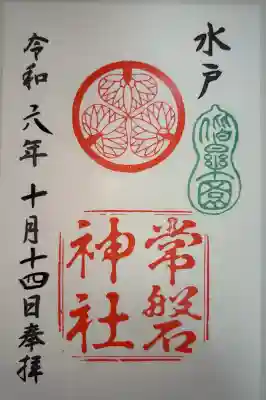 水戸
偕楽園
常磐
神社
令和六年十月十四日奉拝